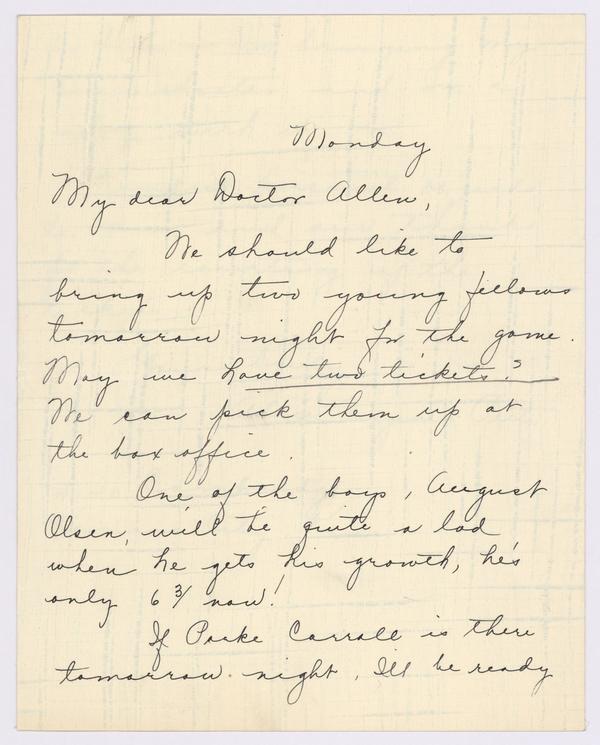 Monday
My dear Doctor Allen,
We should like to
bring up two young fellows
tomorrow night for the game.
May we have two tickets?
We can pick them up at
the box office.
One of the boys, August
Olsen, will be quite a lad
when he gets his growth, he's
only 6 3/ now!
If Parke Carroll is there
tomorrow night, I'll be ready